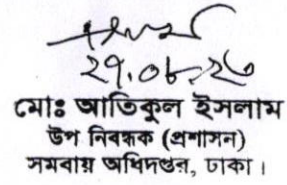 ২৭.০৮.২৩
মোঃ আতিকুল ইসলাম
উপ নিবন্ধক (প্রশাসন)
সমবায় অধিদপ্তর, ঢাকা।